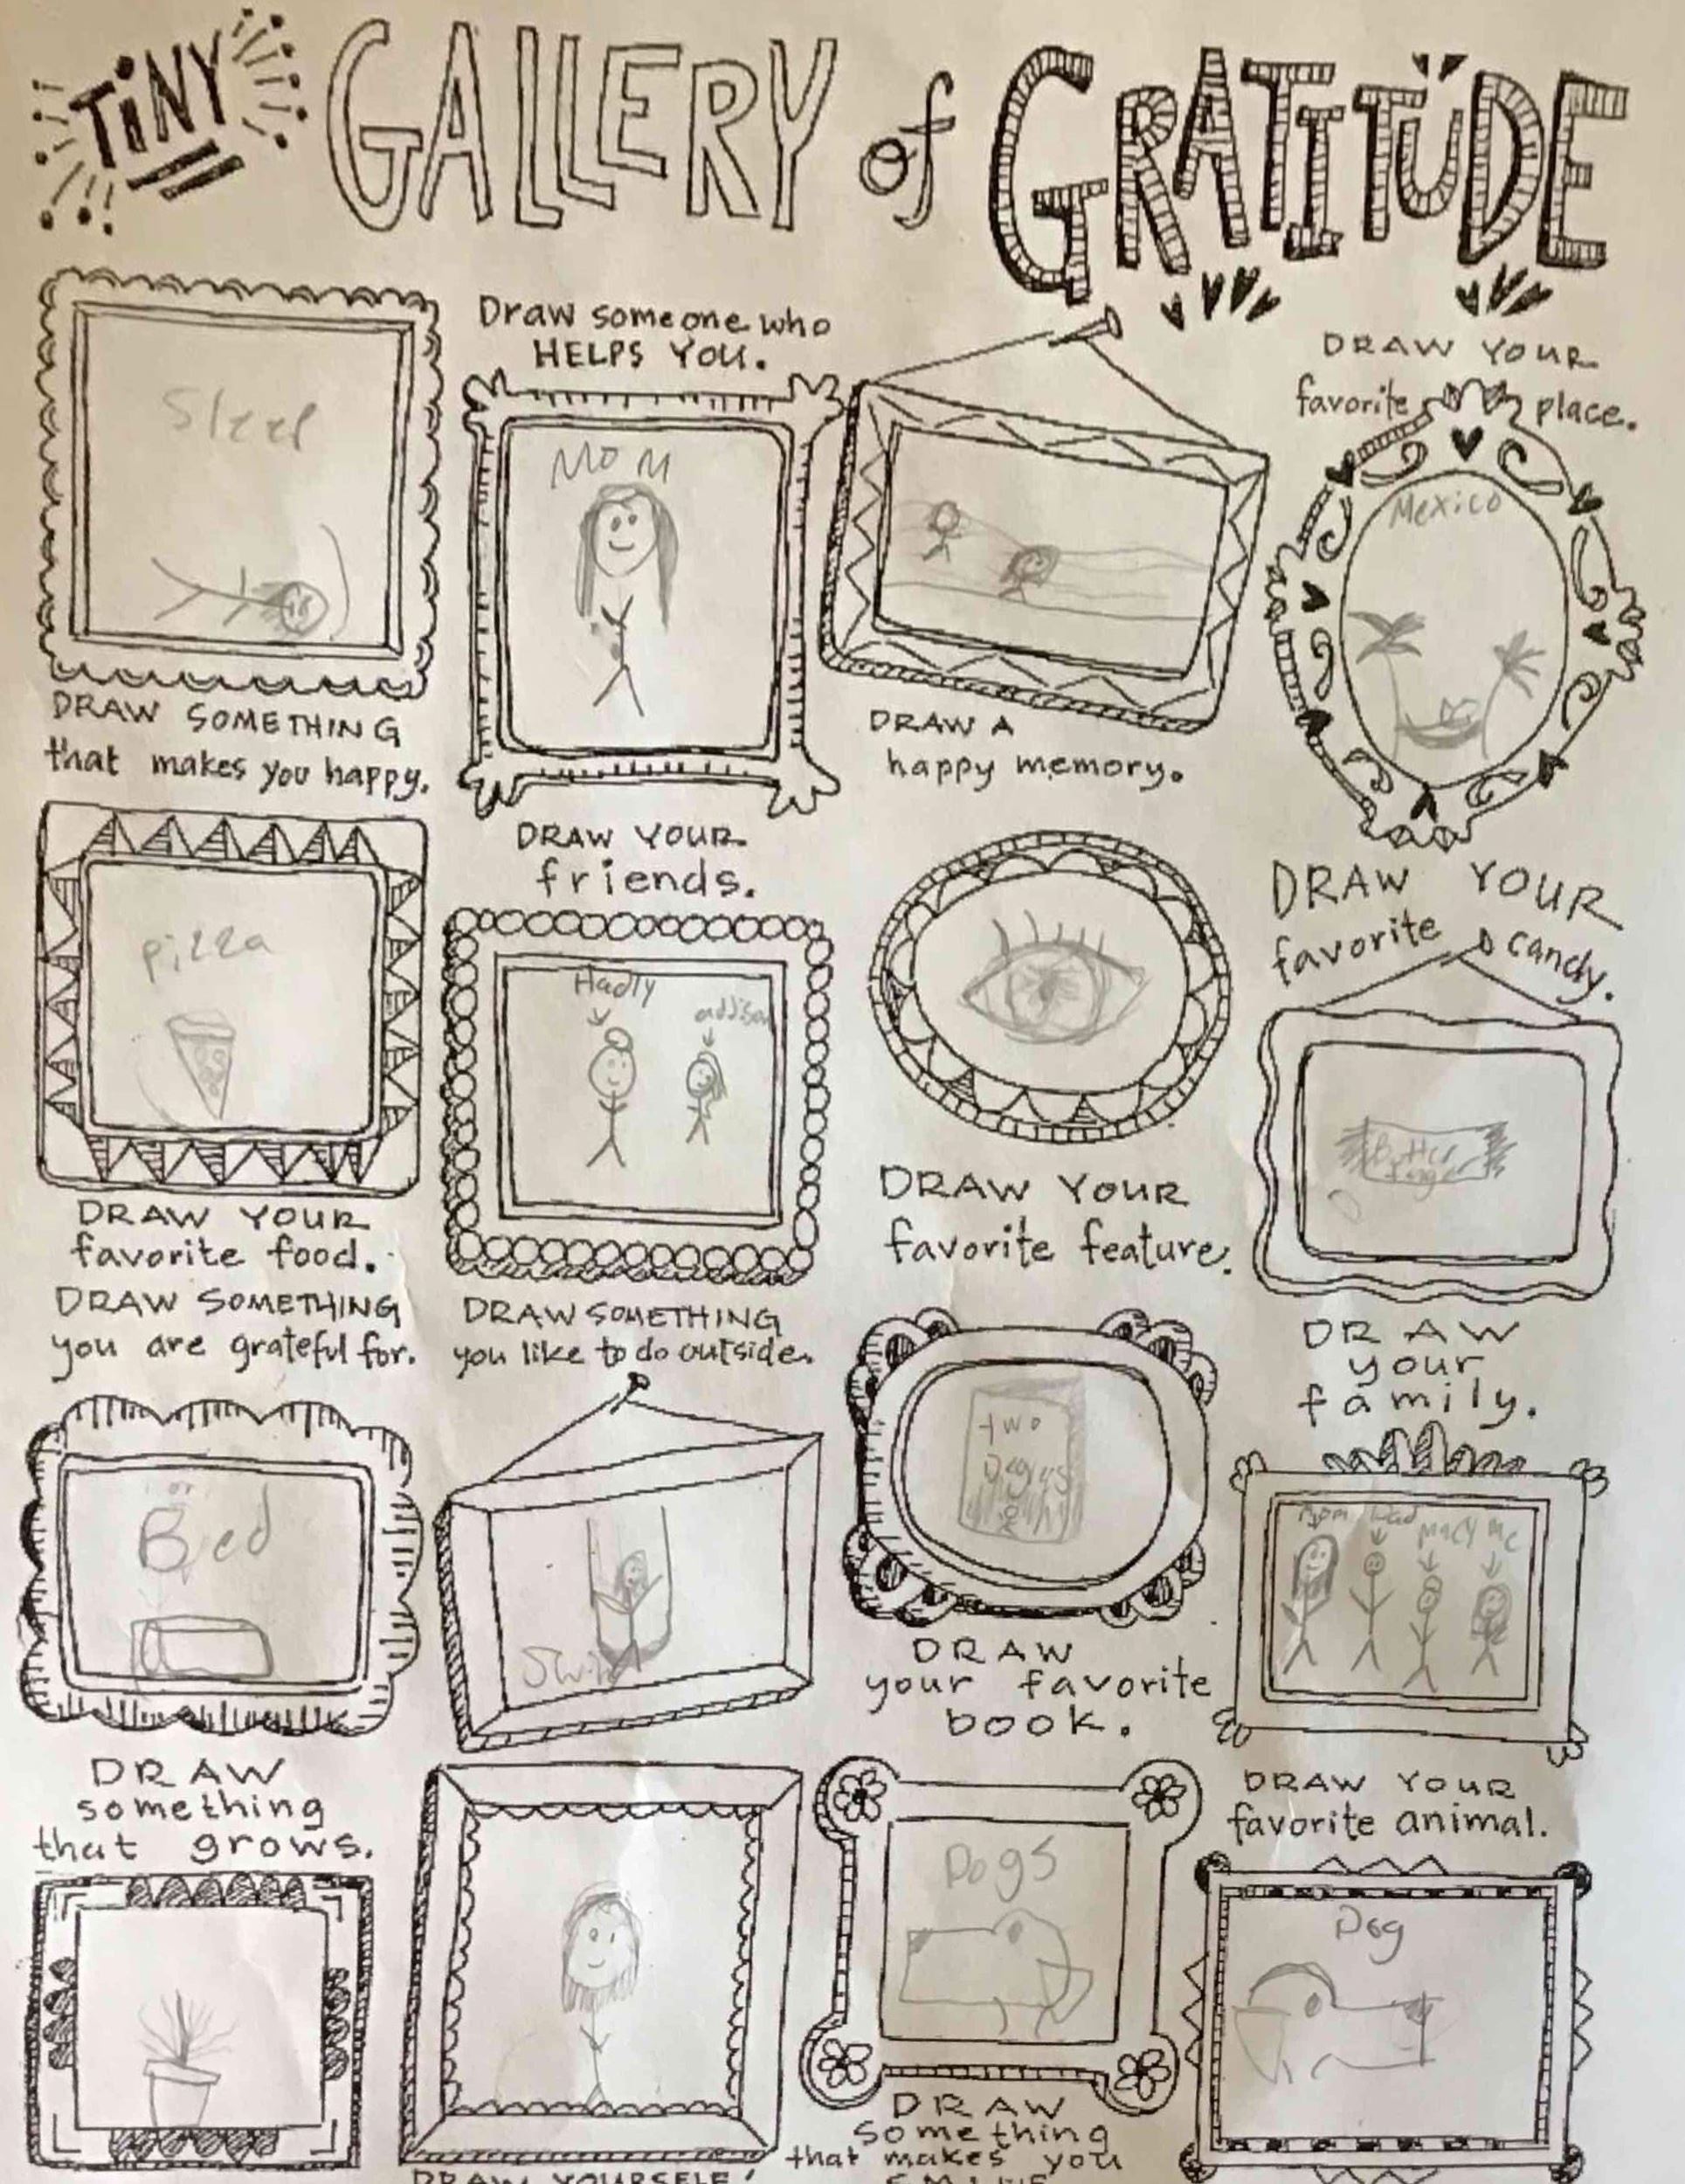 TiNY GALLERY of GRATITUDE
Sleep
DRAW SOMETHING
that makes you happy.
Draw someone who
HELPS YOU.
MOM
DRAW A
happy memory.
DRAW YOUR
favorite place.
Mexico
pizza
DRAW YOUR
favorite food.
DRAW YOUR
friends.
Hadly
addison
DRAW YOUR
favorite feature.
DRAW YOUR
favorite candy.
Butter
DRAW SOMETHING
you are grateful for.
Bed
DRAW SOMETHING
you like to do outside.
two
DRAW
your favorite
book.
DRAW
your
family.
Mom Dad macy me
DRAW
something
that grows.
DRAW YOURSELF!
Dogs
DRAW
something
that makes you
SMILE
DRAW YOUR
favorite animal.
Dog